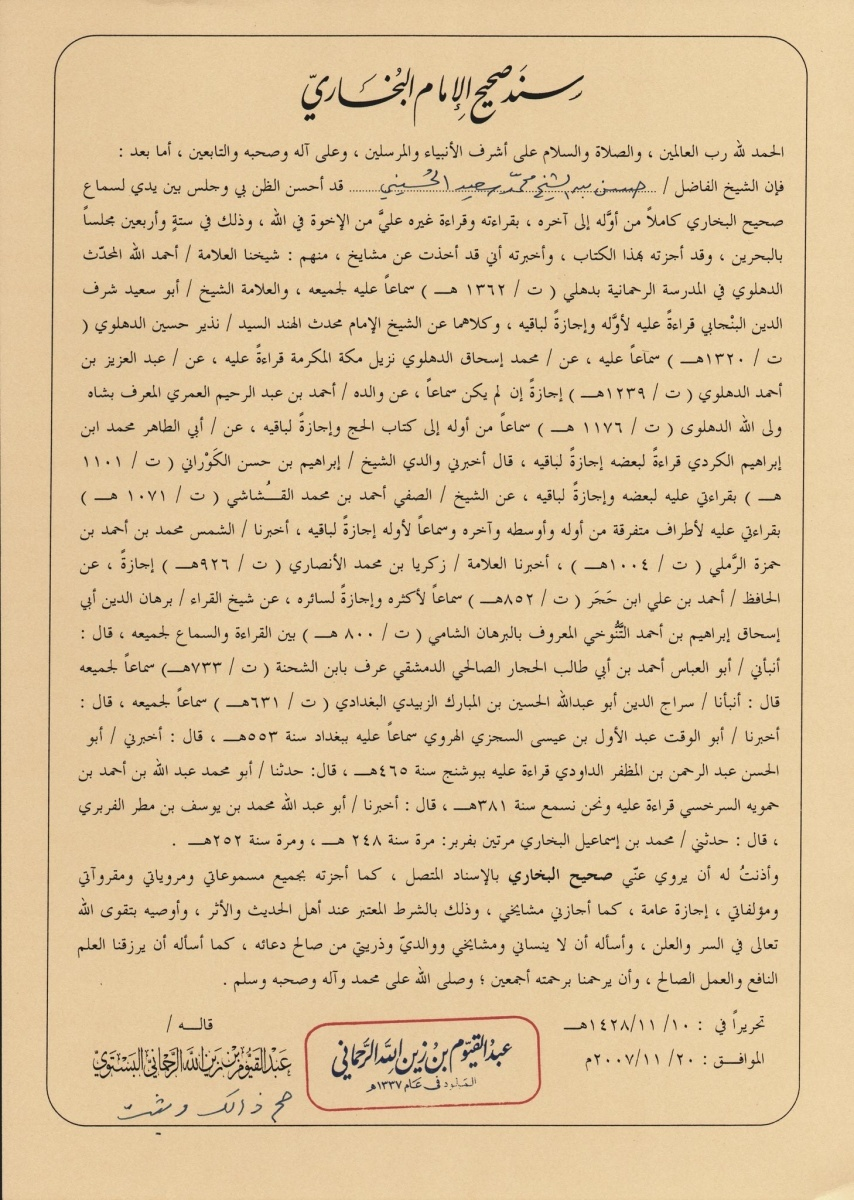 سند صحيح الإمام البخاري
الحمد لله رب العالمين ، والصلاة والسلام على أشرف الأنبياء والمرسلين ، وعلى آله وصحبه والتابعين ، أما بعد :
فإن الشيخ الفاضل / حسن الشيخ محمد الحسيني قد أحسن الظن بي وجلس بين يدي لسماع
صحيح البخاري كاملاً من أوَّله إلى آخره ، بقراءته وقراءة غيره عليَّ من الإخوة في الله ، وذلك في ستةٍ وأربعين مجلساً
بالبحرين ، وقد أجزته بهذا الكتاب ، وأخبرته أني قد أخذت عن مشايخ ، منهم : شيخنا العلامة / أحمد الله المحدّث
الدهلوي في المدرسة الرحمانية بدهلي ( ت / ١٣٦٢ هـ ) سماعاً عليه لجميعه ، والعلامة الشيخ / أبو سعيد شرف
الدين البنْجابي قراءةً عليه لأوَّله وإجازةً لباقيه ، وكلاهما عن الشيخ الإمام محدث الهند السيد / نذير حسين الدهلوي (
ت / ١٣٢٠هـ ) سماعاً عليه ، عن / محمد إسحاق الدهلوي نزيل مكة المكرمة قراءةً عليه ، عن / عبد العزيز بن
أحمد الدهلوي ( ت / ١٢٣٩هـ ) إجازةً إن لم يكن سماعاً ، عن والده / أحمد بن عبد الرحيم العمري المعرف بشاه
ولى الله الدهلوى ( ت / ١١٧٦ هـ ) سماعاً من أوله إلى كتاب الحج وإجازةً لباقيه ، عن / أبي الطاهر محمد ابن
إبراهيم الكردي قراءةً لبعضه إجازةً لباقيه ، قال أخبرني والدي الشيخ / إبراهيم بن حسن الكَوْراني ( ت / ١١٠١
هـ ) بقراءتي عليه لبعضه وإجازةً لباقيه ، عن الشيخ / الصفي أحمد بن محمد القُشاشي ( ت / ١٠٧١ هـ )
بقراءتي عليه لأطراف متفرقة من أوله وأوسطه وآخره وسماعاً لأوله إجازةً لباقيه ، أخبرنا / الشمس محمد بن أحمد بن
حمزة الرَّملي ( ت / ١٠٠٤هـ ) ، أخبرنا العلامة / زكريا بن محمد الأنصاري ( ت / ٩٢٦هـ ) إجازةً ، عن
الحافظ / أحمد بن علي ابن حَجَر ( ت / ٨٥٢هـ ) سماعاً لأكثره وإجازةً لسائره ، عن شيخ القراء / برهان الدين أبي
إسحاق إبراهيم بن أحمد التَّنُّوخي المعروف بالبرهان الشامي ( ت / ٨٠٠ هـ ) بين القراءة والسماع لجميعه ، قال :
أنبأني / أبو العباس أحمد بن أبي طالب الحجار الصالحي الدمشقي عرف بابن الشحنة ( ت / ٧٣٣هـ) سماعاً لجميعه
قال : أنبأنا / سراج الدين أبو عبدالله الحسين بن المبارك الزبيدي البغدادي ( ت / ٦٣١هـ ) سماعاً لجميعه ، قال :
أخبرنا / أبو الوقت عبد الأول بن عيسى السجزي الهروي سماعاً عليه ببغداد سنة ٥٥٣هـ ، قال : أخبرني / أبو
الحسن عبد الرحمن بن المظفر الداودي قراءة عليه ببوشنج سنة ٤٦٥هـ ، قال: حدثنا / أبو محمد عبد الله بن أحمد بن
حمويه السرخسي قراءة عليه ونحن نسمع سنة ٣٨١هـ ، قال : أخبرنا / أبو عبد الله محمد بن يوسف بن مطر الفربري
، قال : حدثني / محمد بن إسماعيل البخاري مرتين بفربر: مرة سنة ٢٤٨ هـ ، ومرة سنة ٢٥٢هـ .
وأذنتُ له أن يروي عنّي صحيح البخاري بالإسناد المتصل ، كما أجزته بجميع مسموعاتي ومروياتي ومقروآتي
ومؤلفاتي ، إجازة عامة ، كما أجازني مشايخي ، وذلك بالشرط المعتبر عند أهل الحديث والأثر ، وأوصيه بتقوى الله
تعالى في السر والعلن ، وأسأله أن لا ينساني ومشايخي ووالديّ وذريتي من صالح دعائه ، كما أسأله أن يرزقنا العلم
النافع والعمل الصالح ، وأن يرحمنا برحمته أجمعين ؛ وصلى الله على محمد وآله وصحبه وسلم .
تحريراً في : ١٠ /١٤٢٨/١١هـ
الموافق : ٢٠ /٢٠٠٧/١١م
عبد القيوم بن زين الله الرحماني
المولود في عام ١٣٣٧هـ
قاله /
عبد القيوم بن زين الله الرحماني البستوي
صح ذالك